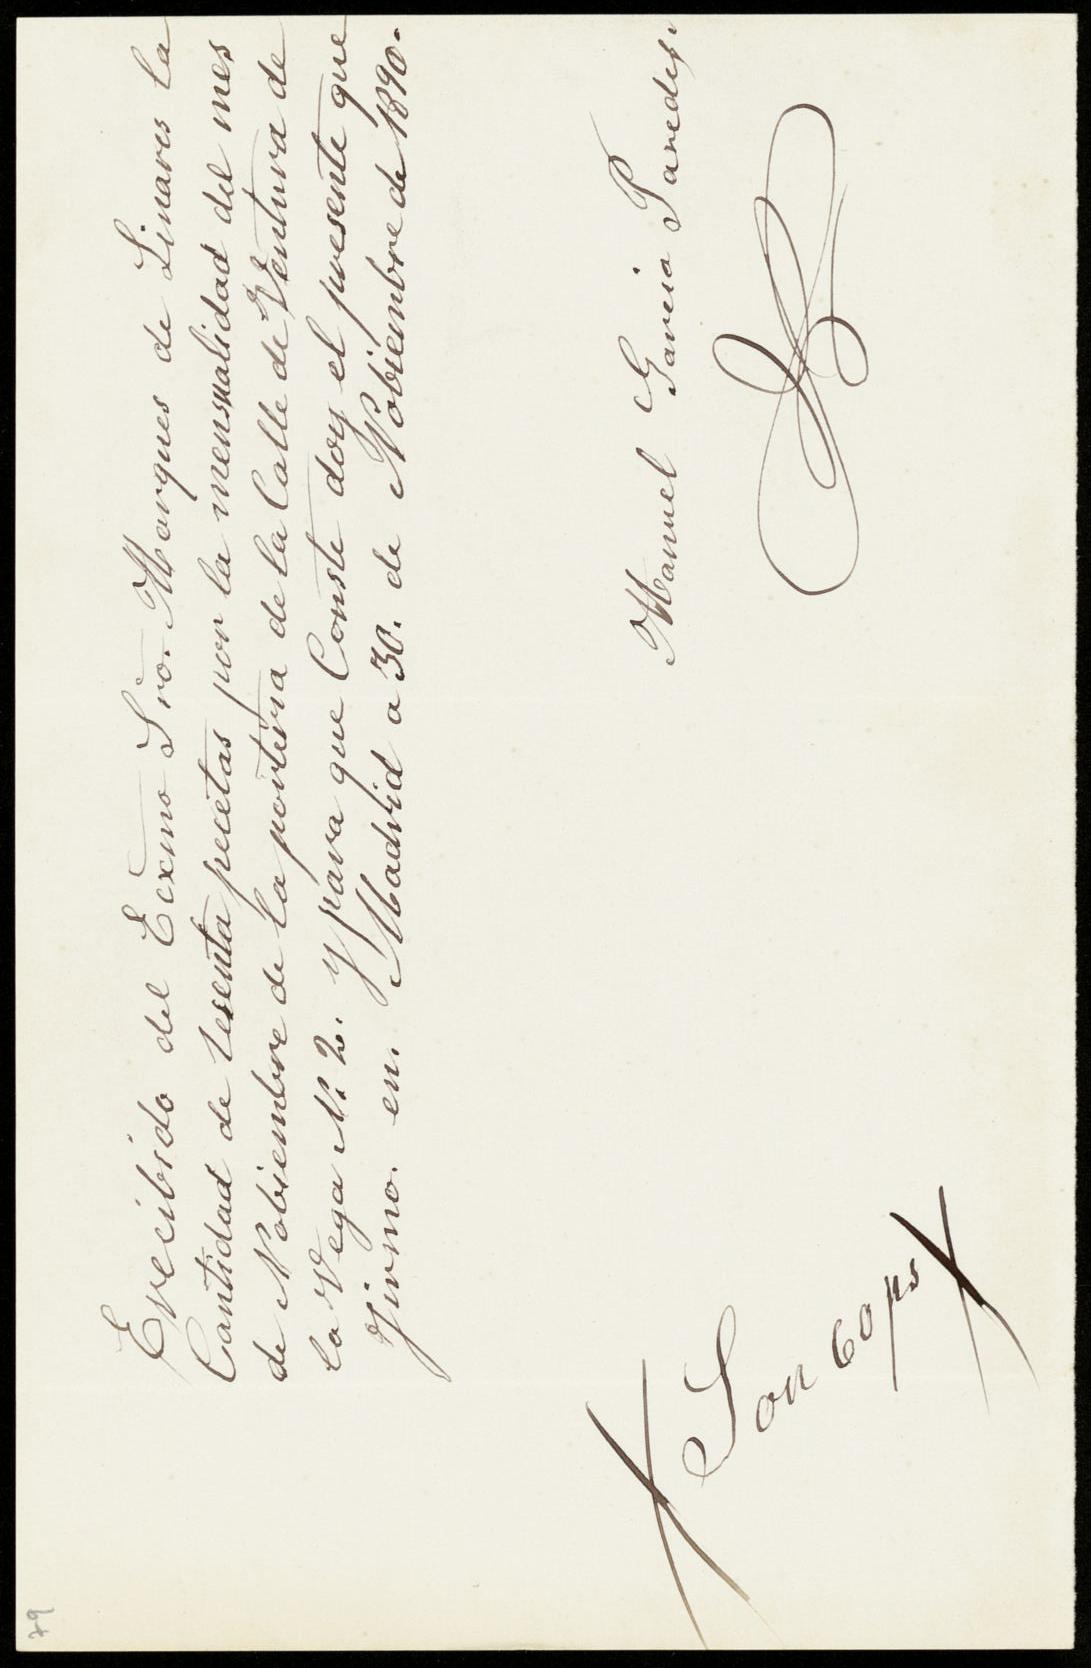 Erecibido del Ecxmo Sro. Marques de Linares la
Cantidad de Sesenta pecetas por la mensualidad del mes
de Nobiembre de la porteria de la Calle de Ventura de
la Vega N. 2. y para que Conste doy el presente que
firmo. en. Madrid a 30. de Nobiembre de 1890.
Manuel Garcia Paredes
Son 60 ps
79